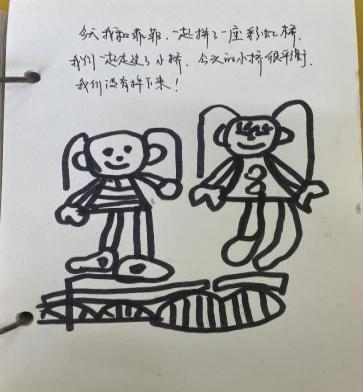 今天我和乖乖，一起拼了一座彩虹桥，
我们一起走过了小桥，今天的小桥很平衡，
我们没有摔下来！
2